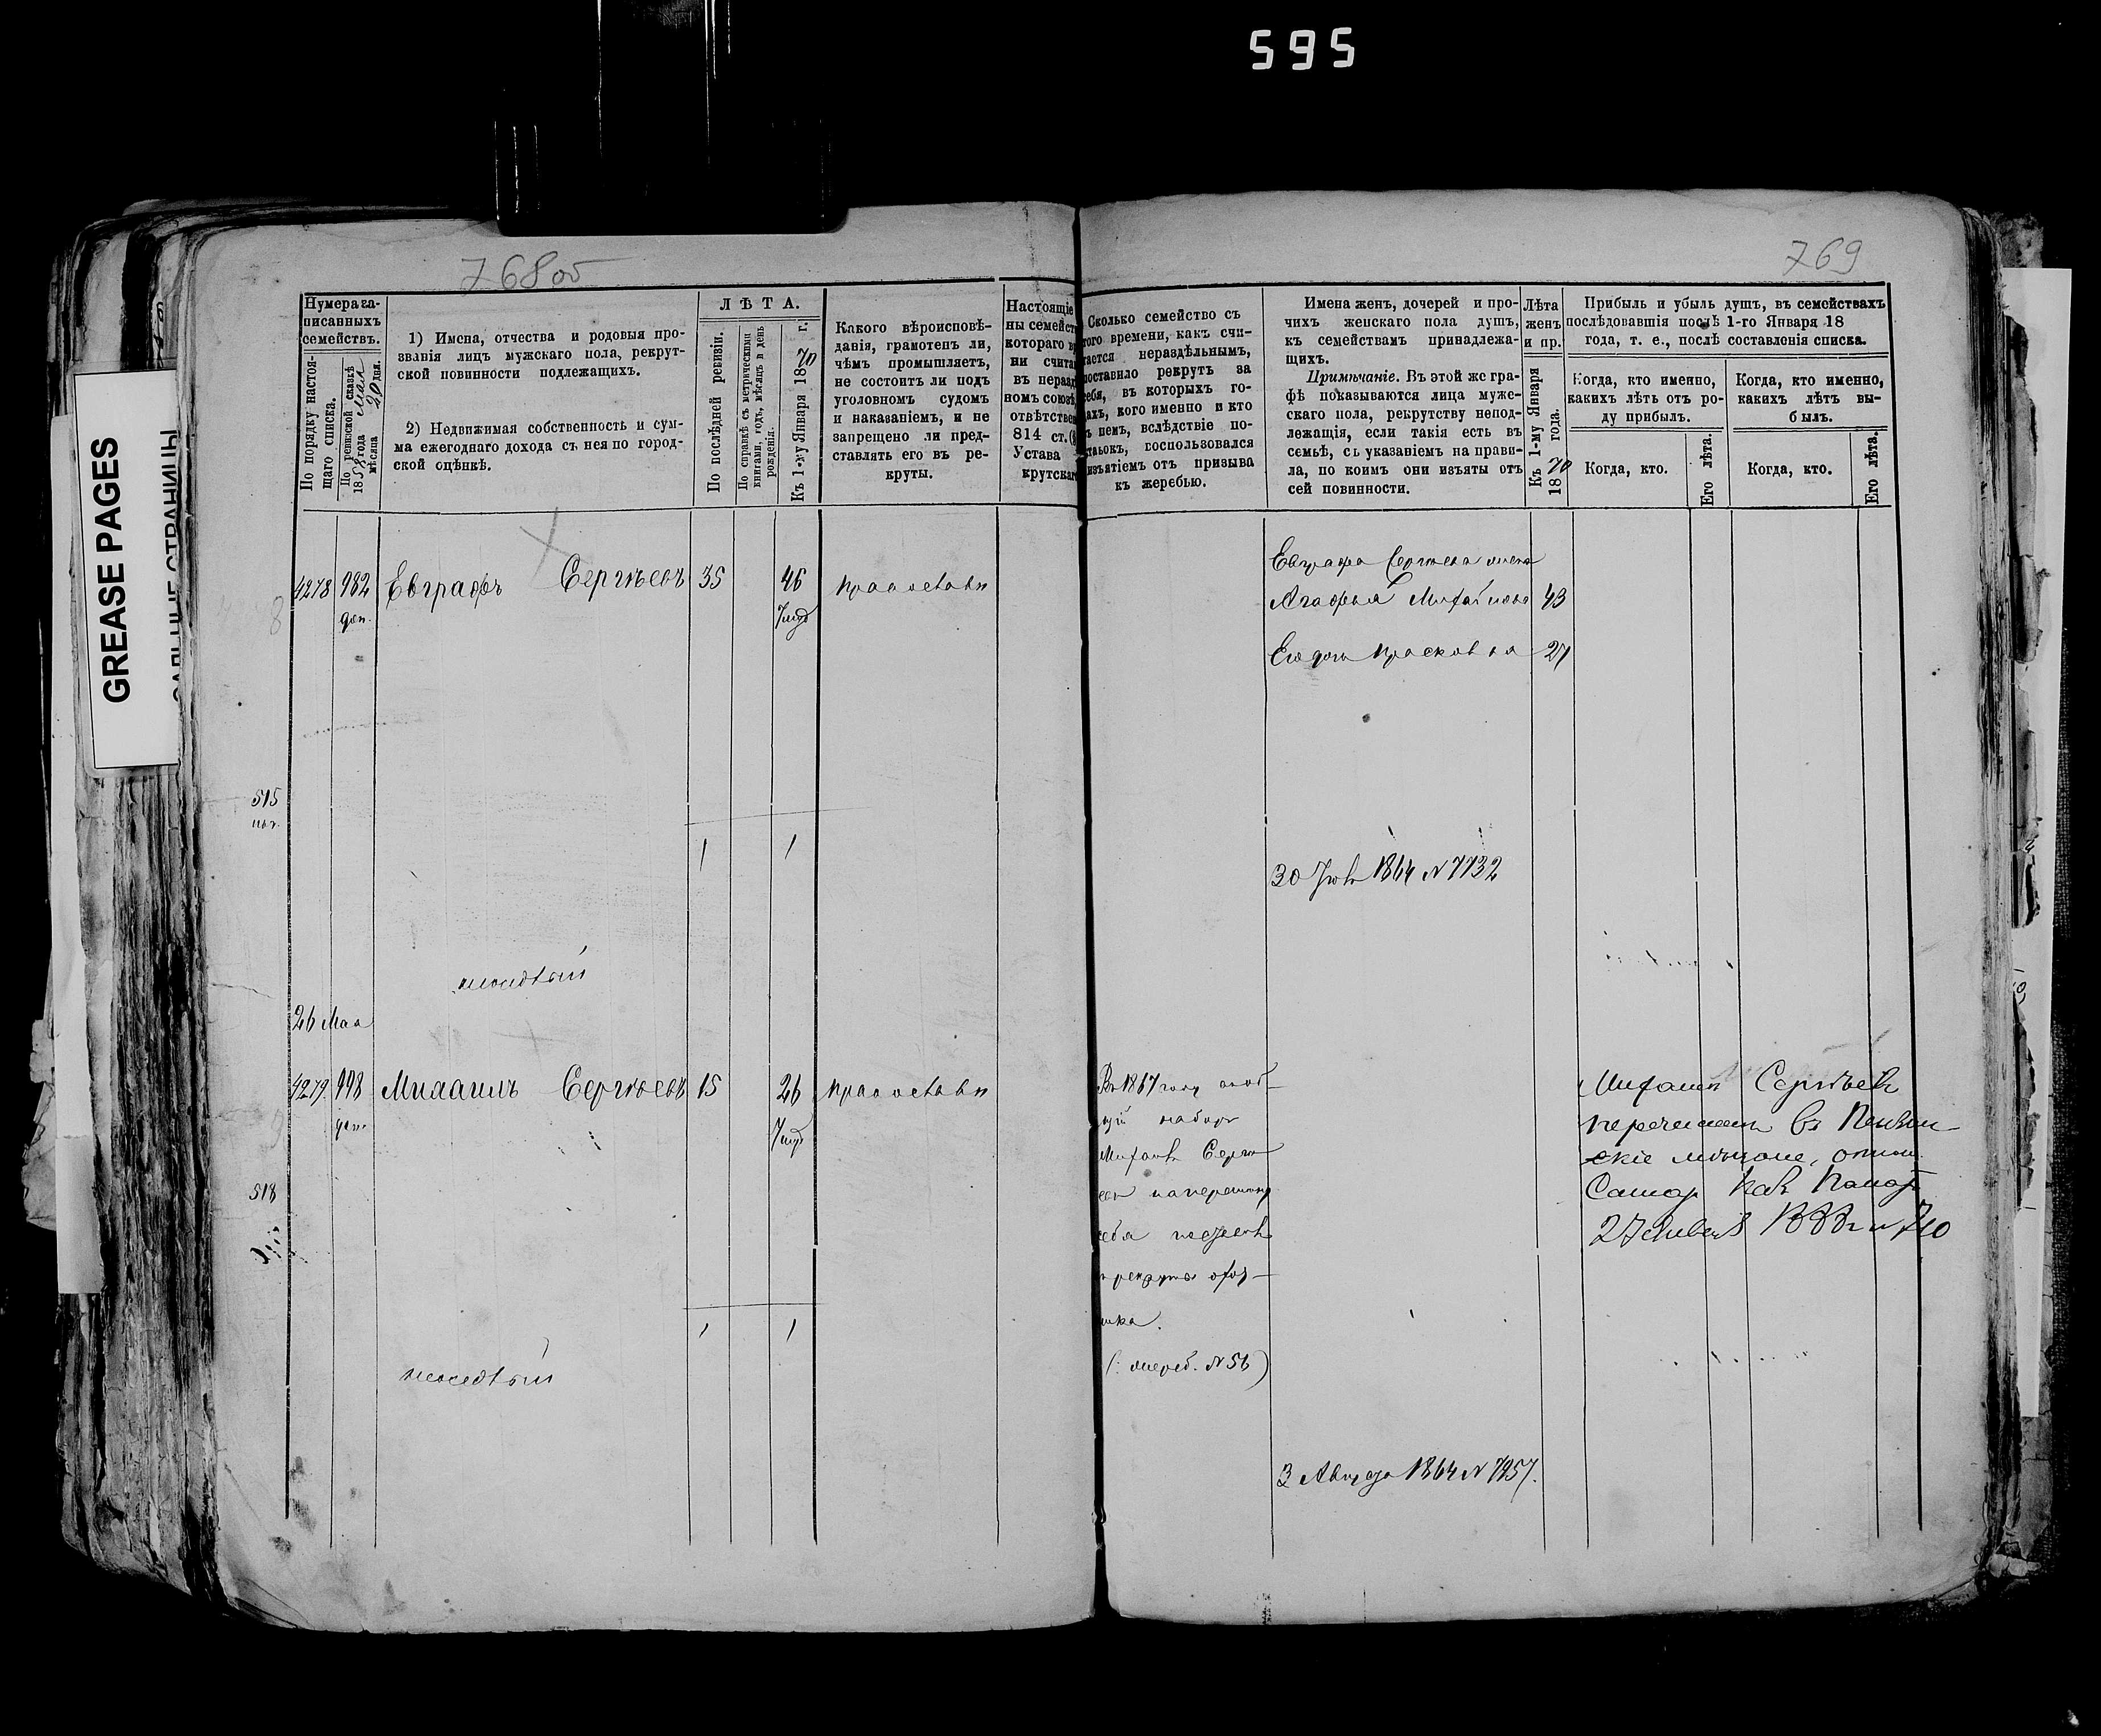 595
GREASE PAGES
САЛЬНЫЕ СТРАНИЦЫ
768 об
769
Нумера за-
писанныхъ
семействъ.
По порядку настоя-
щаго списка.
По ревизской сказкѣ
1858 года Мая
мѣсяца 20 дня.
1) Имена, отчества и родовыя про-
званія лицъ мужскаго пола, рекрут-
ской повинности подлежащихъ.
2) Недвижимая собственность и сум-
ма ежегоднаго дохода съ нея по город-
ской оцѣнкѣ.
ЛѢТА.
По послѣдней ревизіи.
По справкѣ съ метрическими
книгами, годъ, мѣсяцъ и день
рожденія.
Къ 1-му Января 1870 г.
Какого вѣроисповѣ-
данія, грамотенъ ли,
чѣмъ промышляетъ,
не состоитъ ли подъ
уголовномъ судомъ
и наказаніемъ, и не
запрещено ли пред-
ставлять его въ ре-
круты.
Настоящіе
ны семейст
котораго в
ни счита
въ нераз
номъ союзѣ
отвѣтствен
814 ст.
Устава
крутскаг
Сколько семейство съ
того времени, какъ счи-
тается нераздѣльнымъ,
поставило рекрутъ за
себя, въ которыхъ го-
дахъ, кого именно и кто
въ немъ, вслѣдствіе по-
воспользовался
изъятіемъ отъ призыва
къ жеребью.
Имена женъ, дочерей и про-
чихъ женскаго пола душъ,
къ семействамъ принадлежа-
щихъ.
Примѣчаніе. Въ этой же гра-
фѣ показываются лица муже-
скаго пола, рекрутству непод-
лежащія, если такія есть въ
семьѣ, съ указаніемъ на прави-
ла, по коимъ они изъяты отъ
сей повинности.
Лѣта
женъ
и пр.
Къ 1-му Января
1870 года.
Прибыль и убыль душъ, въ семействахъ
послѣдовавшія послѣ 1-го Января 18
года, т. е., послѣ составленія списка.
Когда, кто именно,
какихъ лѣтъ отъ ро-
ду прибылъ.
Когда, кто.
Его лѣта.
Когда, кто именно,
какихъ лѣтъ вы-
былъ.
Когда, кто.
Его лѣта.
4278 982 Евграфъ Сергѣевъ 35 46 православн
доп.
8
Евграфа Сергѣева жена
Агафья Михайлова 43
Его дочь Прасковья 27
515
1 1
30 Июл 1864 N 7732
26 Мая
4279 998 Михаилъ Сергѣевъ 15 26 православн
доп.
9
518
1 1
Въ 1867 году
наборъ
Михаилъ Серг
себя
(: N 56)
3 Августа 1864 N 7957.
Михаилъ Сергѣевъ
перечисленъ въ Пензен-
скіе мѣщане,
Самар Каз Палат